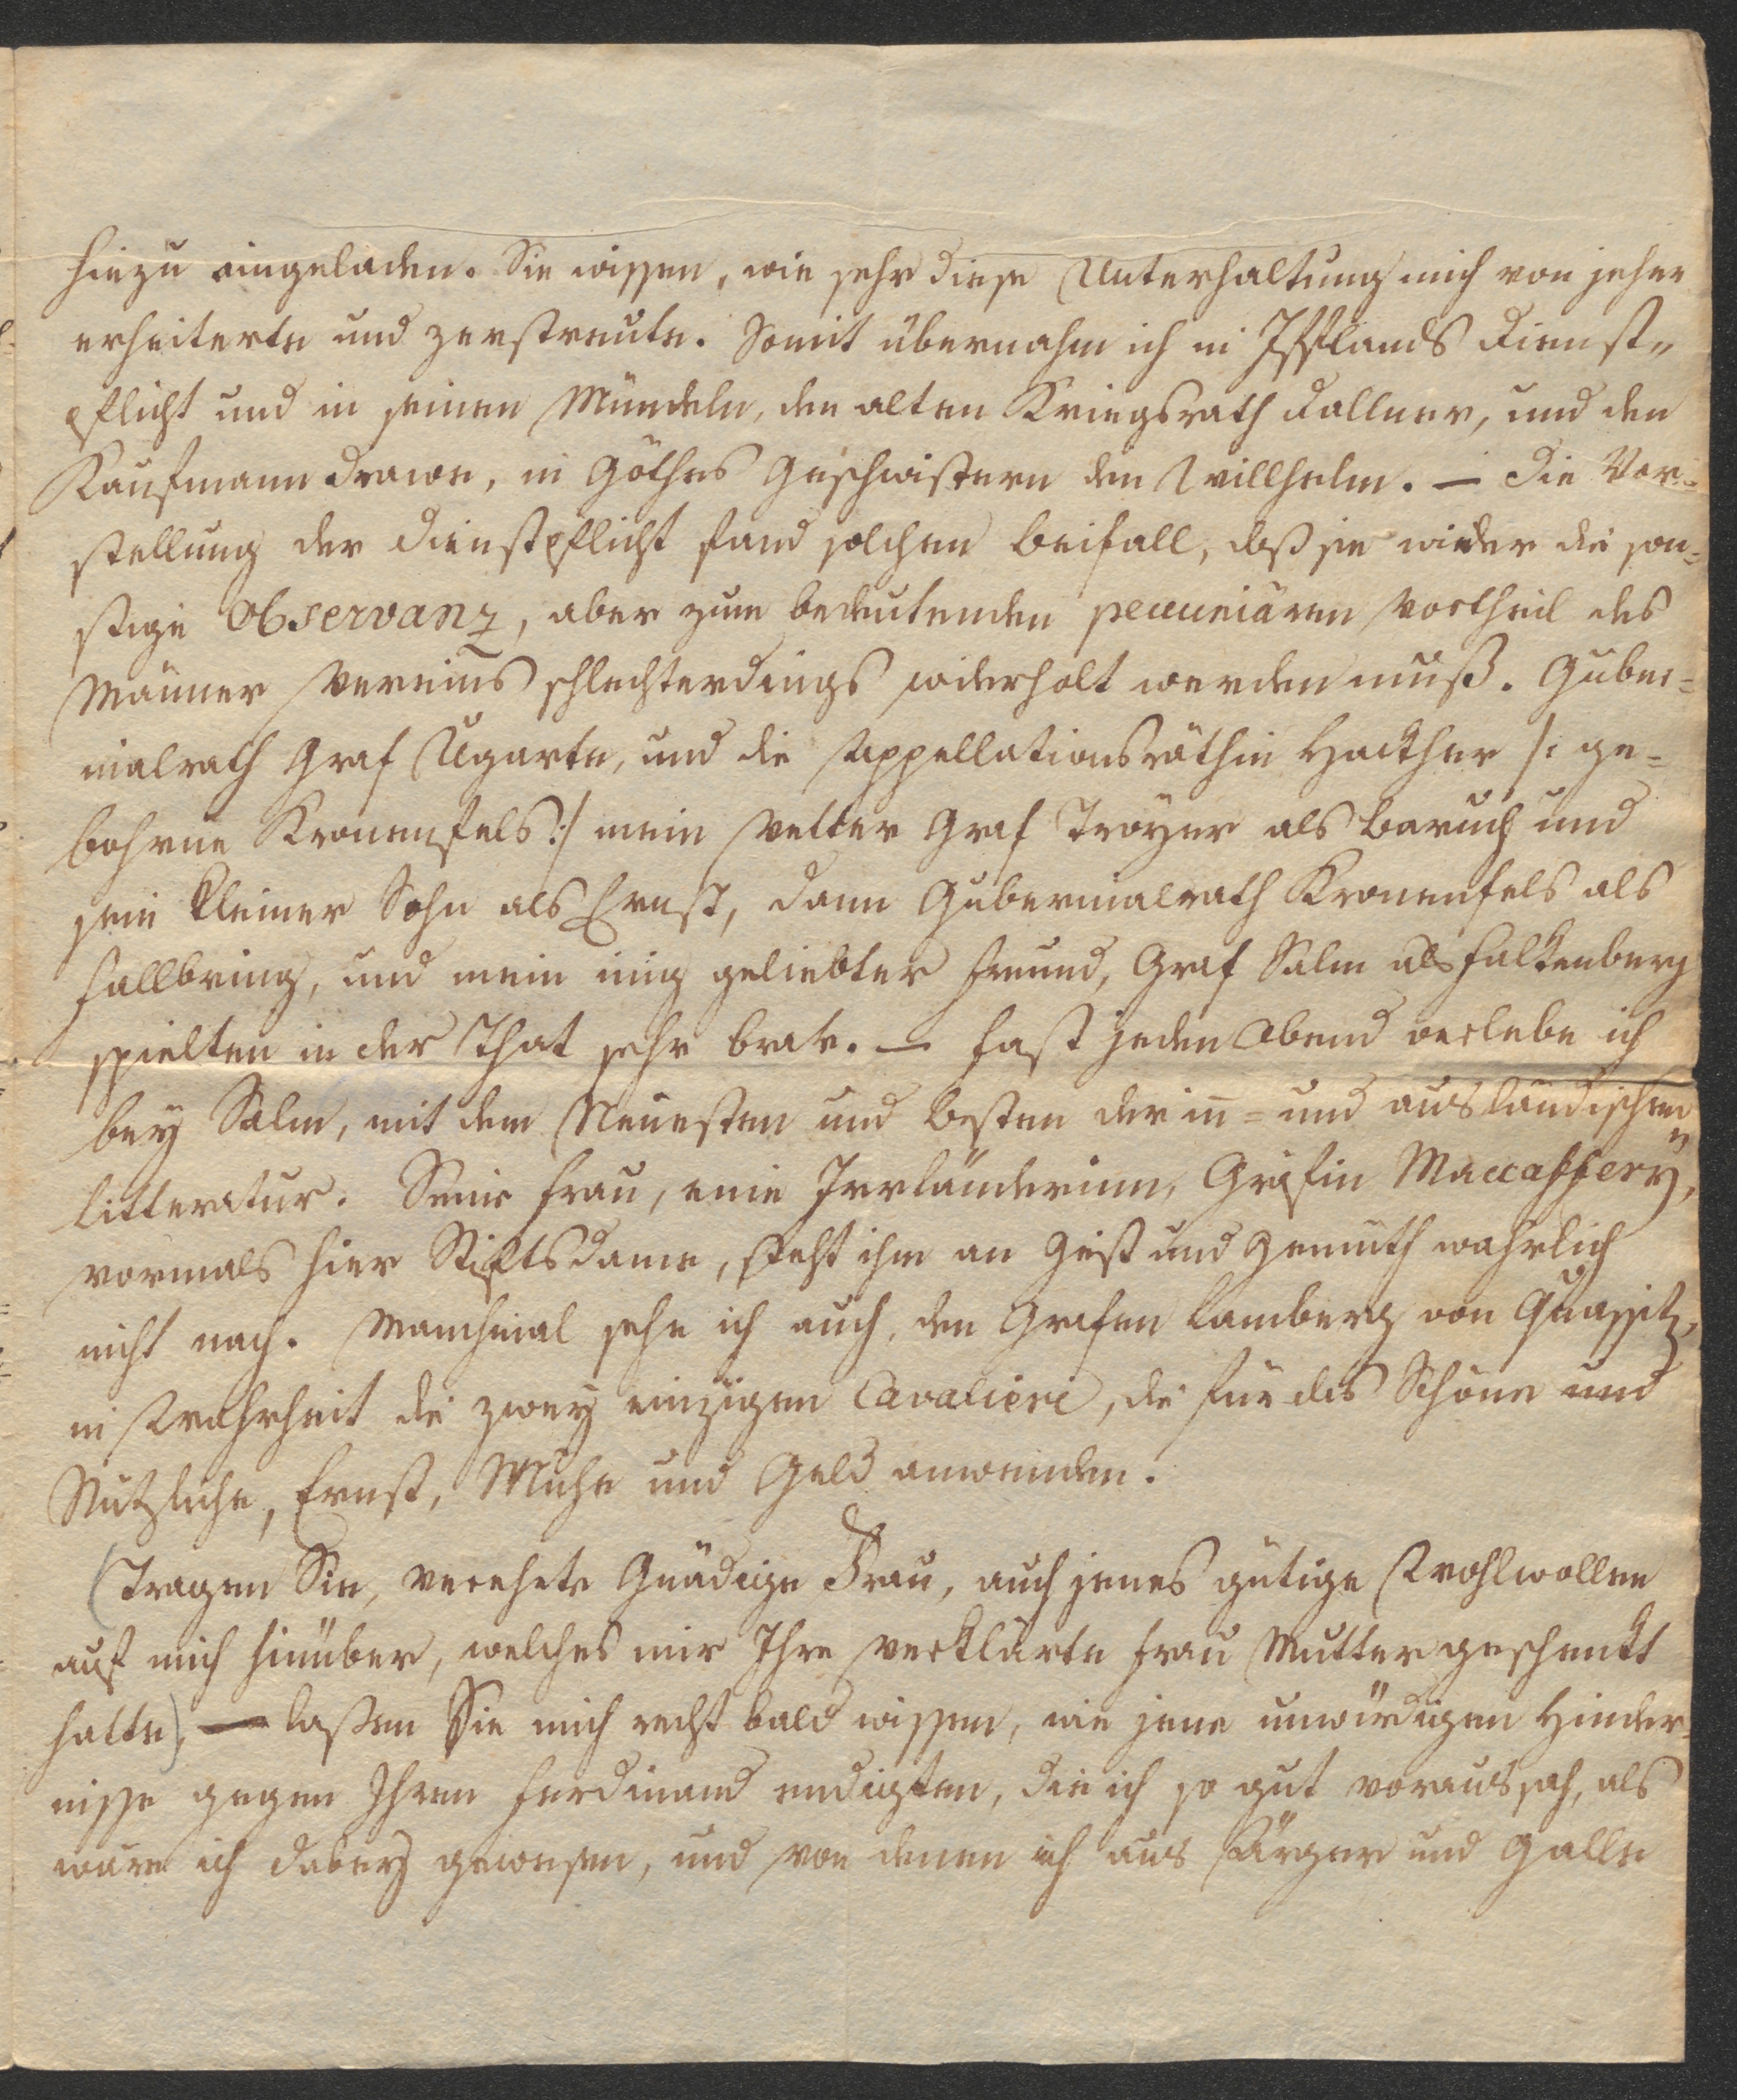 hiezu eingeladen. Sie wissen, wie sehr diese Unterhaltung mich von jeher
erheiterte und zerstreute. Somit übernahm ich in Ifflands Dienst„
pflicht und in seinen Mündeln, den alten Kriegsrath Dallner, und den
Kaufmann Drawe, in Göthes Geschwistern den Willhelm. — Die Vor=
stellung der Dienstpflicht fand solchen Beifall, daß sie wieder die son=
stige Observanz, aber zum bedeutenden pecuniären Vortheil des
Männer Vereins schlechterdings widerholt werden muß. Guber=
nialrath Graf Ugarte, und die Appellationsräthin Hackher /: ge=
bohrne Kronenfels :/ mein Vetter Graf Troyer als Baruch und
sein kleiner Sohn als Ernst, dann Gubernialrath Kronenfels als
Fallbring, und mein inig geliebter Freund, Graf Salm als Falkenberg
spielten in der That sehr brav. — Fast jeden Abend verlebe ich
bey Salm, mit dem Neuesten und Besten der in= und ausländischen
Litteratur. Seine Frau, eine Irrländerinn, Gräfin Maccaffery,
vormals hier Stiftsdame, steht ihm an Geist und Gemüth wahrlich
nicht nach. Manchmal sehe ich auch den Grafen Lamberg von Quassitz,
in Wahrheit die zwey einzigen Cavaliere, die für das Schöne und
Nützliche, Ernst, Mühe und Geld anwenden.
(Tragen Sie, verehrte Gnädige Frau, auch jenes gütige Wohlwollen
auf mich hinüber, welches mir Ihre verklärte Frau Mutter geschenkt
hatte), — laßen Sie mich recht bald wissen, wie jene unwürdigen Hinder=
nisse gegen Ihren Ferdinand endigten, die ich so gut voraussah, als
wäre ich dabey gewesen, und von denen ich aus Ärger und Galle